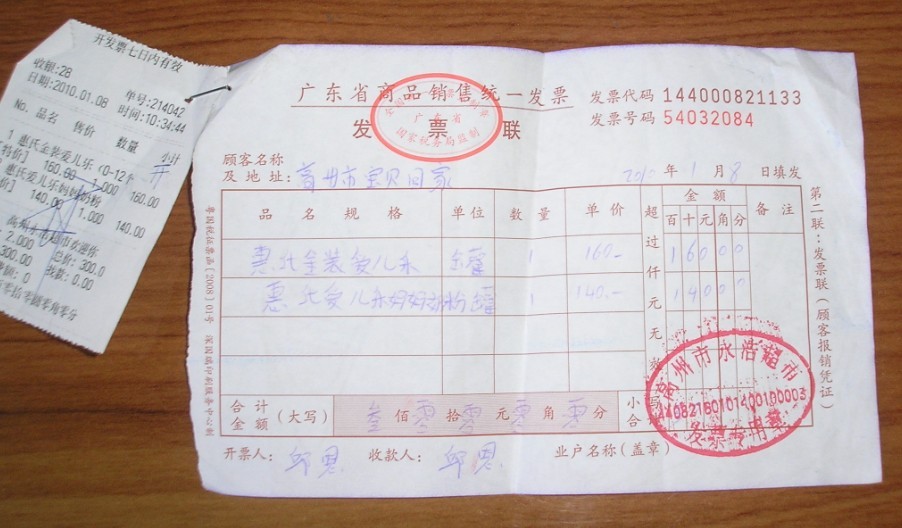 开发票七日内有效
收银:28 单号:214042
日期:2010.01.08 时间:10:34:44
No. 品名 售价 数量 小计
1 惠氏金装爱儿乐 (0-12个
160.00 1.000 160.00
惠氏爱儿乐妈妈奶粉
140.00 1.000 140.00
2.000 总价:300.0
300.00 找数:0.00
广东省商品销售统一发票
发票联
广东省
国家税务局监制
发票代码 144000821133
发票号码 54032084
顾客名称
及地址: 高州市宝贝回家 2010年1月8日填发
品名规格 单位 数量 单价 超过仟元无效 金额 备注
百十元角分
惠氏金装爱儿乐 罐 1 160.- 16000
惠氏爱儿乐妈妈奶粉 罐 1 140.- 14000
合计金额 (大写) 叁佰零拾零元零角零分 小写合计
开票人: 邱恩 收款人: 邱恩 业户名称(盖章)
高州市永浩超市
发票专用章
第二联:发票联(顾客报销凭证)